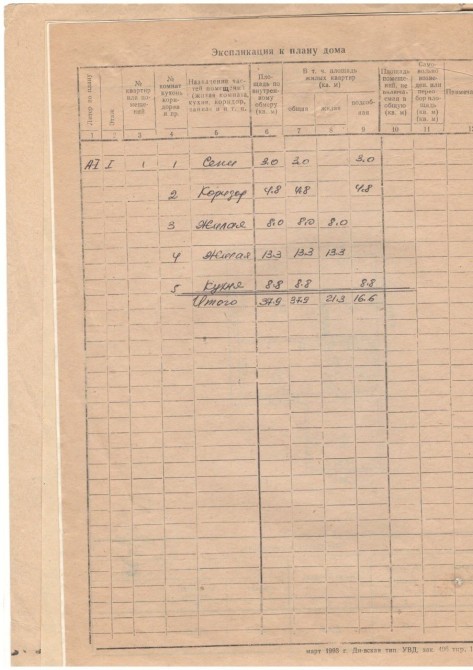 Экспликация к плану дома
Литер по плану
Этаж
№ квартир или по- меще- ний
№ комнат кухонь кори- доров и пр.
Назначение час- тей помещения: (жилая комната, кухня, коридор, ванная и т. п.
Пло- щадь по внутрен- нему обмеру (кв. м)
В т. ч. площадь жилых квартир (кв. м)
общая
жилая
подсоб- ная
Площадь помеще- ний, не включа- емая в общую (кв. м)
Само- вольно возве- ден. или пере- обор пло- щадь (кв. м)
Примеча
1 2 3 4 5 6 7 8 9 10 11 12
АI I 1 1 Сени 3.0 3.0 3.0
2 Коридор 4.8 4.8 4.8
3 Жилая 8.0 8.0 8.0
4 Жилая 13.3 13.3 13.3
5 Кухня 8.8 8.8 8.8
Итого 37.9 37.9 21.3 16.6
март 1993 г. Дн-вская тип. УВД, зак.